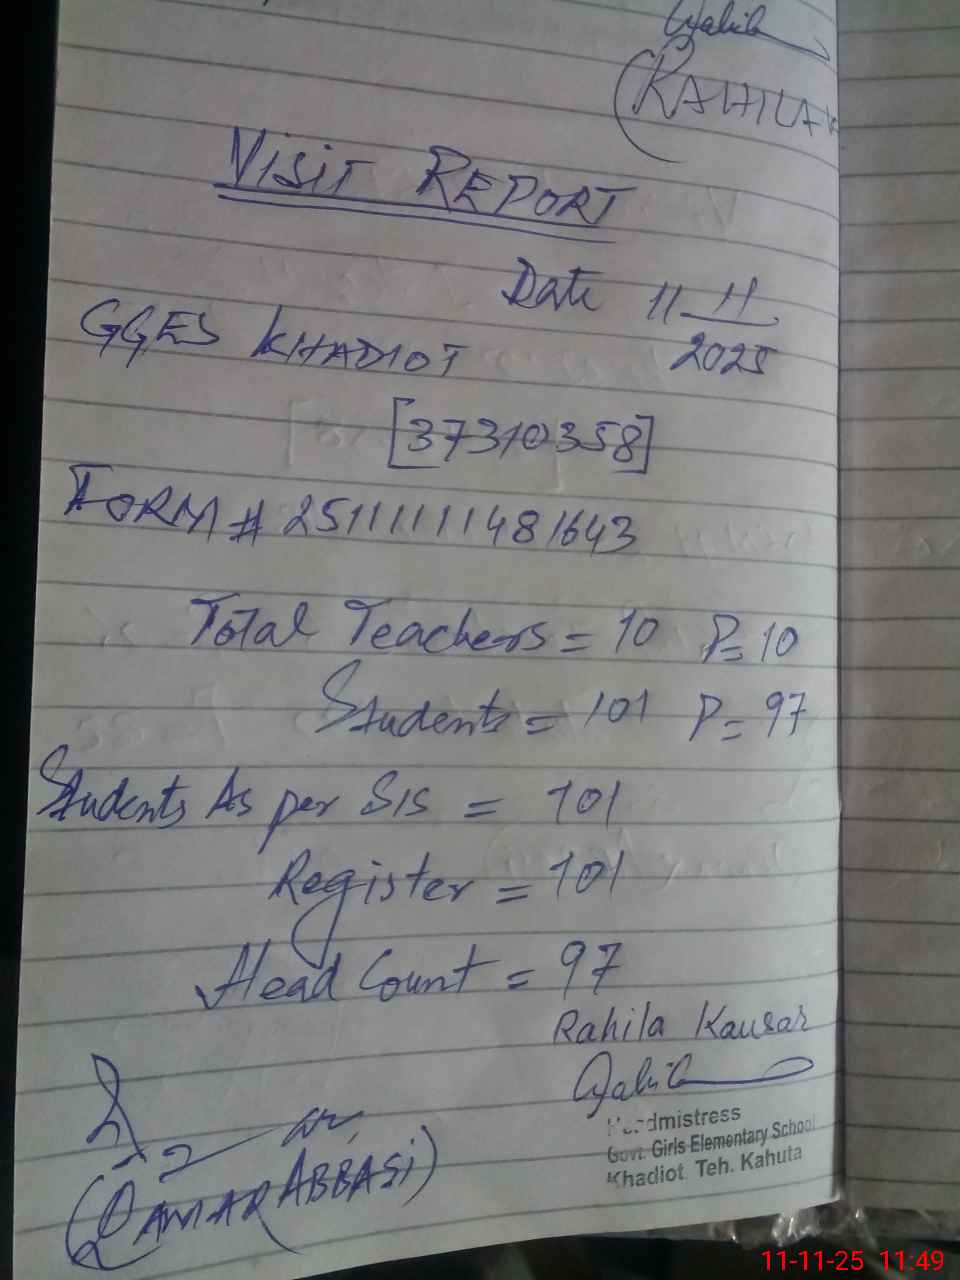 (RAHILA K
VISIT REPORT
Date 11 11
2025
GGES KHADIOT
[37310358]
FORM # 2511111481643
Total Teachers = 10 P= 10
Students = 101 P= 97
Students As per SIS = 101
Register = 101
Head Count = 97
Rahila Kausar
Headmistress
Govt. Girls Elementary School
Khadiot Teh. Kahuta
(QAMAR ABBASI)
11-11-25 11:49